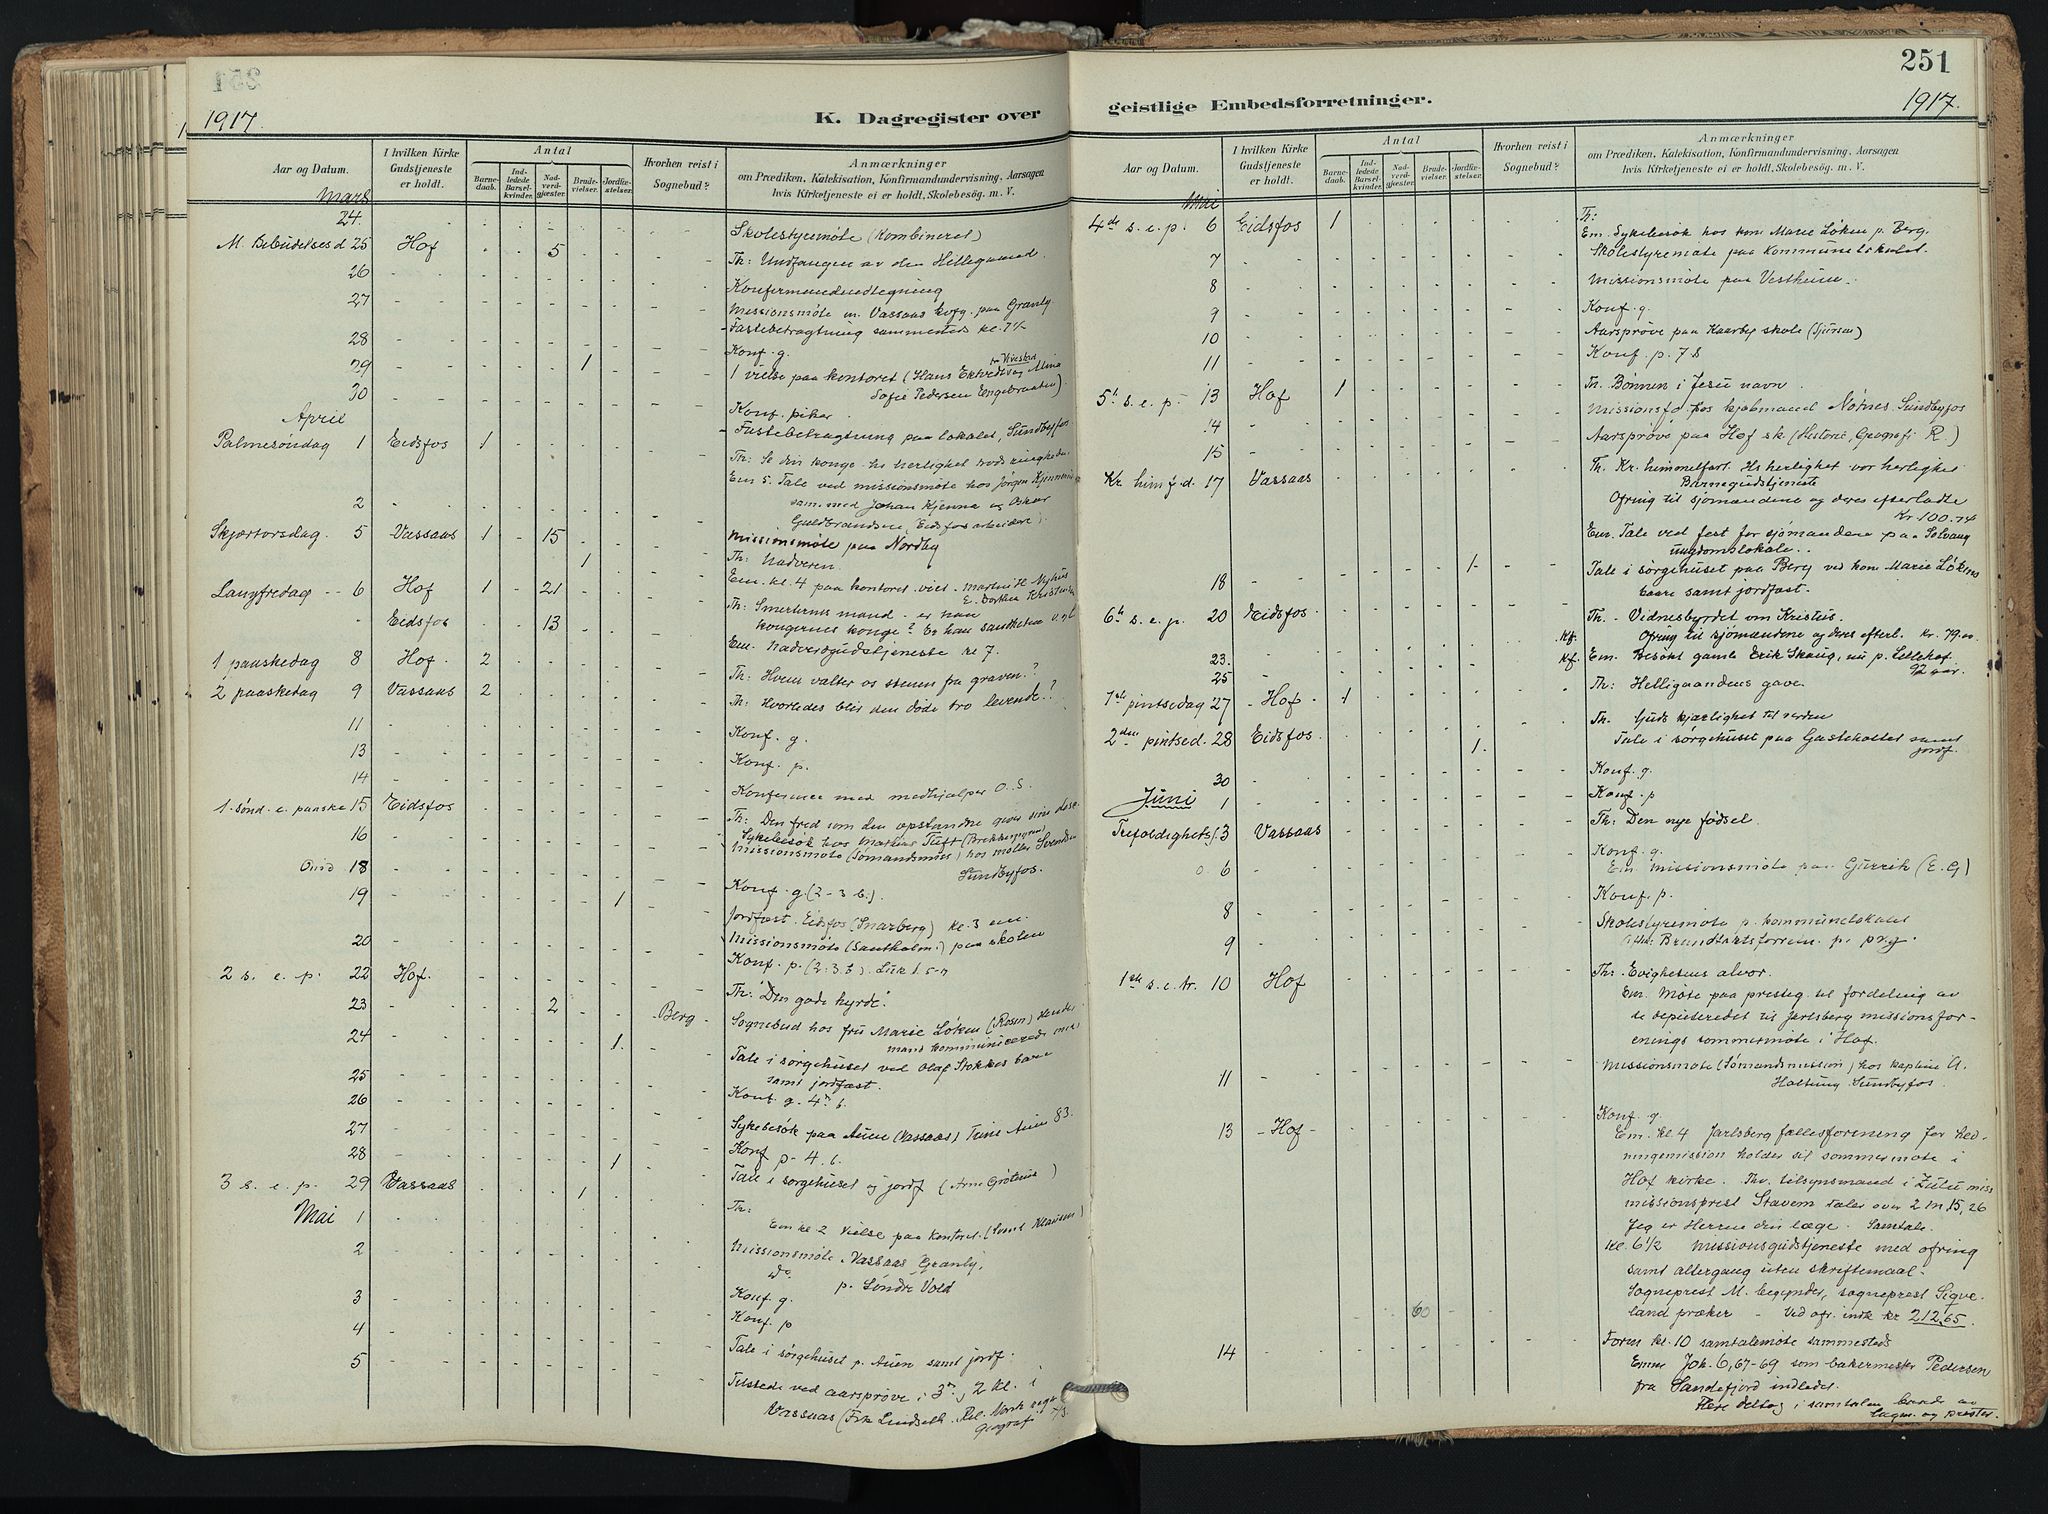 251
1917.
K. Dagregister over
Aar og Datum.
I hvilken Kirke Gudstjeneste er holdt.
Antal
Barnedaab.
Indledede Barselkvinder.
Nadverdgjæster.
Brudevielser.
Jordfæstelser.
Hvorhen reist i Sognebud?
Anmærkninger
om Prædiken, Katekisation, Konfirmandundervisning, Aarsagen
hvis Kirketjeneste ei er holdt, Skolebesög. m. V.
Mars
24. Skolestyremøte (Kombineret)
M. Bebudelses d 25 Hof 5 Th: Undfangen av den Helligaand.
26
27 Missionsmøte m. Vassaas kvfg. paa Granly
Fastebetragtning sammesteds kl. 7½
28 Konf. g.
29 1 1 vielse paa kontoret (Hans
Sofie Pedersen Engebraaten).
30 Konf. piker.
April
Palmesøndag 1 Eidsfos 1
Fastebetragtning paa lokalet, Sundbyfos
Th: Se din konge
Em 5. Tale ved missionsmøte hos Jørgen
sam. med Johan Kjenna og Oskar
Guldbrandsen, Eidsfos arbeidere).
2 Missionsmøte paa Nordby
Skjærtorsdag. 5 Vassaas 1 15 Th: Nadveren.
1 Em. kl. 4 paa kontoret viet Martin H. Nyhus
Langfredag 6 Hof 1 21 Th: Smerternes mand - er han
kongernes konge?
Eidsfos 13 Em. Nadvergudstjeneste kl 7.
1 paaskedag 8 Hof 2 Th: Hvem vælter os stenen fra graven?
2 paaskedag 9 Vassaas 2 Th: Hvorledes blir den døde tro levende?
11 Konf. g.
13 Konf. p.
14 Konference med medhjælper O. S.
1. sønd. e. paaske 15 Eidsfos Th: Den fred som den opstandne giver sine
16 Sykebesøk hos Mathias Tuft
Missionsmøte (Sømandsmis) hos møller Svendsen
Sundbyfos.
Onsd 18 Konf. g (2-3 b.)
19 1 Jordfæst. Eidsfos (Snarberg) kl. 3 em.
Missionsmøte paa skolen
20 Konf. p. (2:3. b).
2 s. e. p. 22 Hof. Th: "Den gode hyrde".
23 2 Berg Sognebud hos fru Marie Løken (Rosen)
mand kommunicerede
24 1. Tale i sørgehuset ved Olaf Stokkes barn
samt jordfæst.
25 Konf. g. 4. b.
26 Sykebesøk paa Auen (Vassaas) Trine Auen 83.
27 Konf p- 4. b.
28 1 Tale i sørgehuset og jordf
3 s. e. p. 29 Vassaas 1 Th:
Em kl 2 Vielse paa kontoret.
Mai 1 Missionsmøte. Vassaas Granly,
2 do. p. Søndre Vold
3 Konf. g.
4 Konf. p
Tale i sørgehuset p. Auen samt jordf.
5 Tilstede ved aarsprøve i 3., 2 kl. i
Vassaas
Geograf
251
1917.
geistlige Embedsforretninger.
Aar og Datum.
I hvilken Kirke Gudstjeneste er holdt.
Antal
Barnedaab.
Indledede Barselkvinder.
Nadverdgjæster.
Brudevielser.
Jordfæstelser.
Hvorhen reist i Sognebud?
Anmærkninger
om Prædiken, Katekisation, Konfirmandundervisning, Aarsagen
hvis Kirketjeneste ei er holdt, Skolebesög. m. V.
Mai
4de s. e. p. 6 Eidsfos 1 Th:
Em. Sykebesøk hos kone Marie Løken p. Berg.
7 Skolestyremøte paa Kommunelokalet.
8 Missionsmøte paa Vestheim.
9 Konf. g.
10 Aarsprøve paa Haarby skole
11 Konf. p. 7 b
5te s. e. p. 13 Hof 1 Th. Bønnen i Jesu navn.
Missionsfo hos kjøbmand Nøtnes. Sundbyfos
14 Aarsprøve paa Hof sk. (Historie, Geografi R.)
15
Kr. himf. d. 17 Vassaas Th. Kr. himmelfart. Hs herlighet vor herlighet
Barnegudstjeneste
Ofring til sjømændene og deres efterladte
Kr. 100.74
Em. Tale ved fest for sjømændene paa Solvang
ungdomslokale.
18 1. Tale i sørgehuset paa Berg ved kone Marie Løkens
baare samt jordfæst.
6te s. e. p. 20 Eidsfos. Th. - Vidnesbyrdet om Kristus.
Kf. Ofring til sjømændene og deres efterl. Kr. 79.00
23. Kf. Em. Besøkt gamle Erik Skaug, nu p. Lillehof
92 aar.
25
1ste pintsedag 27 Hof. 1 Th: Helligaandens gave.
2den pintsed. 28 Eidsfos. Th. Guds kjærlighet til verden
1. Tale i sørgehuset paa Gaasteholtet samt
jordf.
30 Konf. g.
Juni 1 Konf. p
Trefoldighets f. 3 Vassaas Th: Den nye fødsel.
Konf. g.
o. 6 Em. missionsmøte paa Gjerrik (E. G)
8 Konf. p.
Skolestyremøte p. kommunelokalet
9
1ste s. e. tr. 10 Hof Th: Evighetens alvor.
Em. Møte paa presteg. til fordeling av
de deputeredet til Jarlsberg missionsfor-
enings sommermøte i Hof.
11 Missionsmøte (Sømandsmission) hos kaptein A.
Holtung. Sundbyfos.
Konf. g.
13 Hof Em. Kl. 4 Jarlsberg fællesforening for hed-
ningemission holder sit sommermøte i
Hof kirke. Thv. tilsynsmand i Zulu miss
missionsprest Stavem taler over 2 M. 15, 26
Jeg er Herren din læge. Samtale.
Kl. 6½ Missionsgudstjeneste med ofring
samt altergang uten skriftemaal.
Sogneprest M. begynder, sogneprest Sigve-
60 land præker - Ved ofr. indk kr 212,65.
Form kl. 10 samtalemøte sammesteds
14 Emner Joh. 6, 67-69 som bakermester Pedersen
fra Sandefjord indledet.
Flere deltog i samtalen baade av
lægm. og prester.